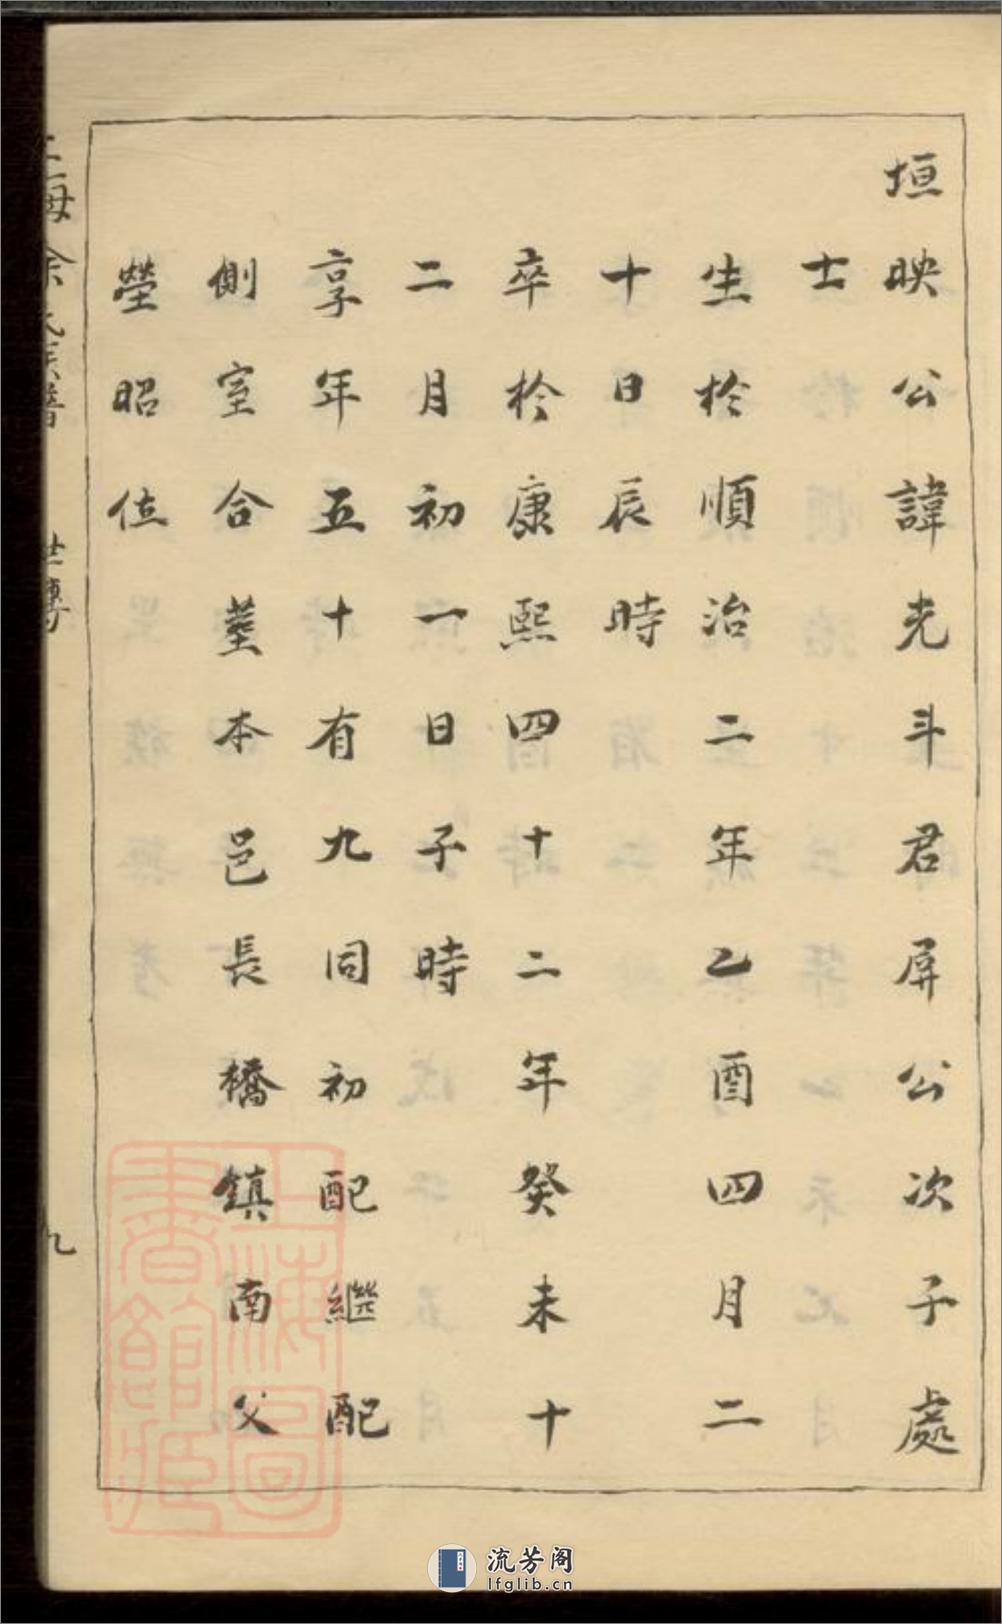 垣映公諱光斗君屏公次子處
士
生於順治二年乙酉四月二
十日辰時
卒於康熙四十二年癸未十
二月初一日子時
享年五十有九同初配繼配
側室合塟本邑長橋鎮南父
塋昭位
上海余氏族譜 世傳 九
上海圖書館藏
流芳阁
lfglib.cn